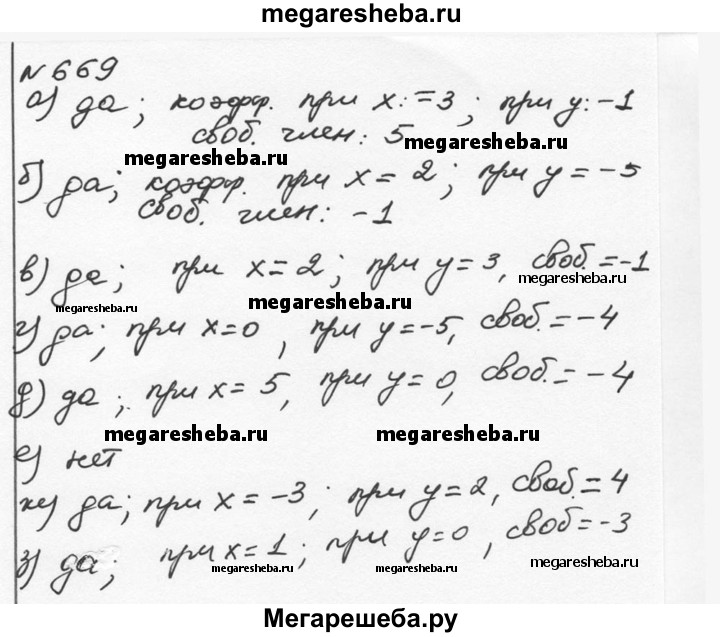 megaresheba.ru
№ 669
а) да; коэфф. при x: =3; при y: -1
своб. член: 5 megaresheba.ru
megaresheba.ru
б) да; коэфф. при x = 2; при y = -5
своб. член: -1
в) да; при x = 2; при y = 3, своб. = -1
megaresheba.ru megaresheba.ru megaresheba.ru
г) да; при x=0, при y=-5, своб. = -4
д) да; при x = 5, при y = 0, своб. = -4
megaresheba.ru megaresheba.ru
е) нет
ж) да; при x = -3; при y = 2, своб. = 4
з) да; при x = 1; при y = 0, своб = -3
megaresheba.ru megaresheba.ru megaresheba.ru
Мегарешеба.ру